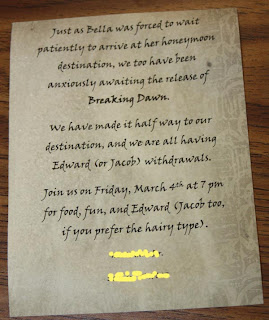 Just as Bella was forced to wait
patiently to arrive at her honeymoon
destination, we too have been
anxiously awaiting the release of
Breaking Dawn.
We have made it half way to our
destination, and we are all having
Edward (or Jacob) withdrawals.
Join us on Friday, March 4th at 7 pm
for food, fun, and Edward (Jacob too,
if you prefer the hairy type).